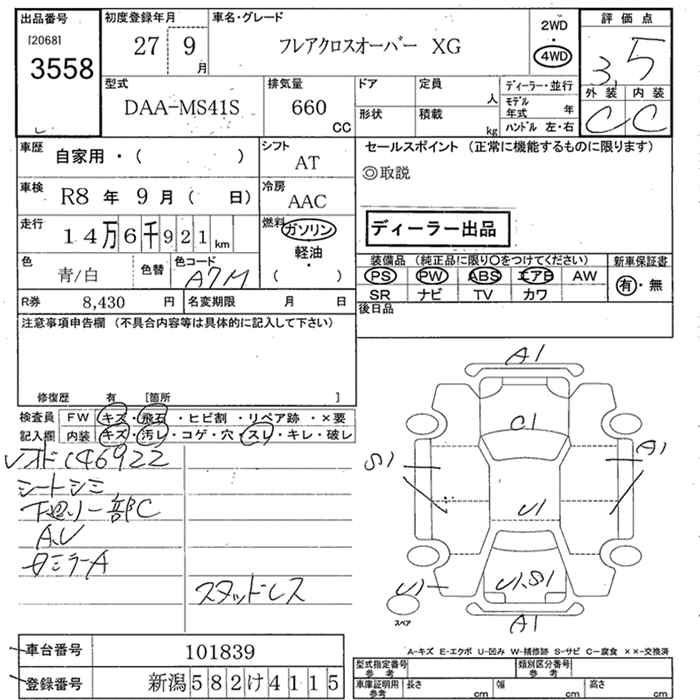 出品番号 初度登録年月 車名・グレード 2WD ・ 4WD 評価点
[2068]
3558 27 9月 フレアクロスオーバー XG 3.5
型式 排気量 ドア 定員 人 ディーラー・並行 外装 内装
DAA-MS41S 660 CC 形状 積載 kg モデル年式 年 ハンドル 左・右 C C
車歴 自家用・( ) シフト AT セールスポイント (正常に機能するものに限ります)
◎取説
車検 R8年9月( 日) 冷房 AAC
走行 14万6千921km 燃料 ガソリン 軽油 ・ ( ) ディーラー出品
色 青/白 色替 色コード A7M 装備品 (純正品に限り○をつけてください) 新車保証書
PS PW ABS エアB AW 有・無
SR ナビ TV カワ
R券 8,430円 名変期限 月 日 後日品
注意事項申告欄 (不具合内容等は具体的に記入して下さい)
修復歴 有 [箇所 ]
検査員 FW キズ・飛石・ヒビ割・リペア跡・×要
記入欄 内装 キズ・汚レ・コゲ・穴・スレ・キレ・破レ
146922
シートシミ
下廻り一部C
A.U
ミラーA
スタッドレス
A1
C1
S1 A1
U1
U1 U1,S1
A1
スペア
A-キズ E-エクボ U-凹み W-補修跡 S-サビ C-腐食 ××-交換済
車台番号 101839
登録番号 新潟582け4115
型式指定番号 参考 類別区分番号 参考
車庫証明用 参考 長さ cm 幅 cm 高さ cm